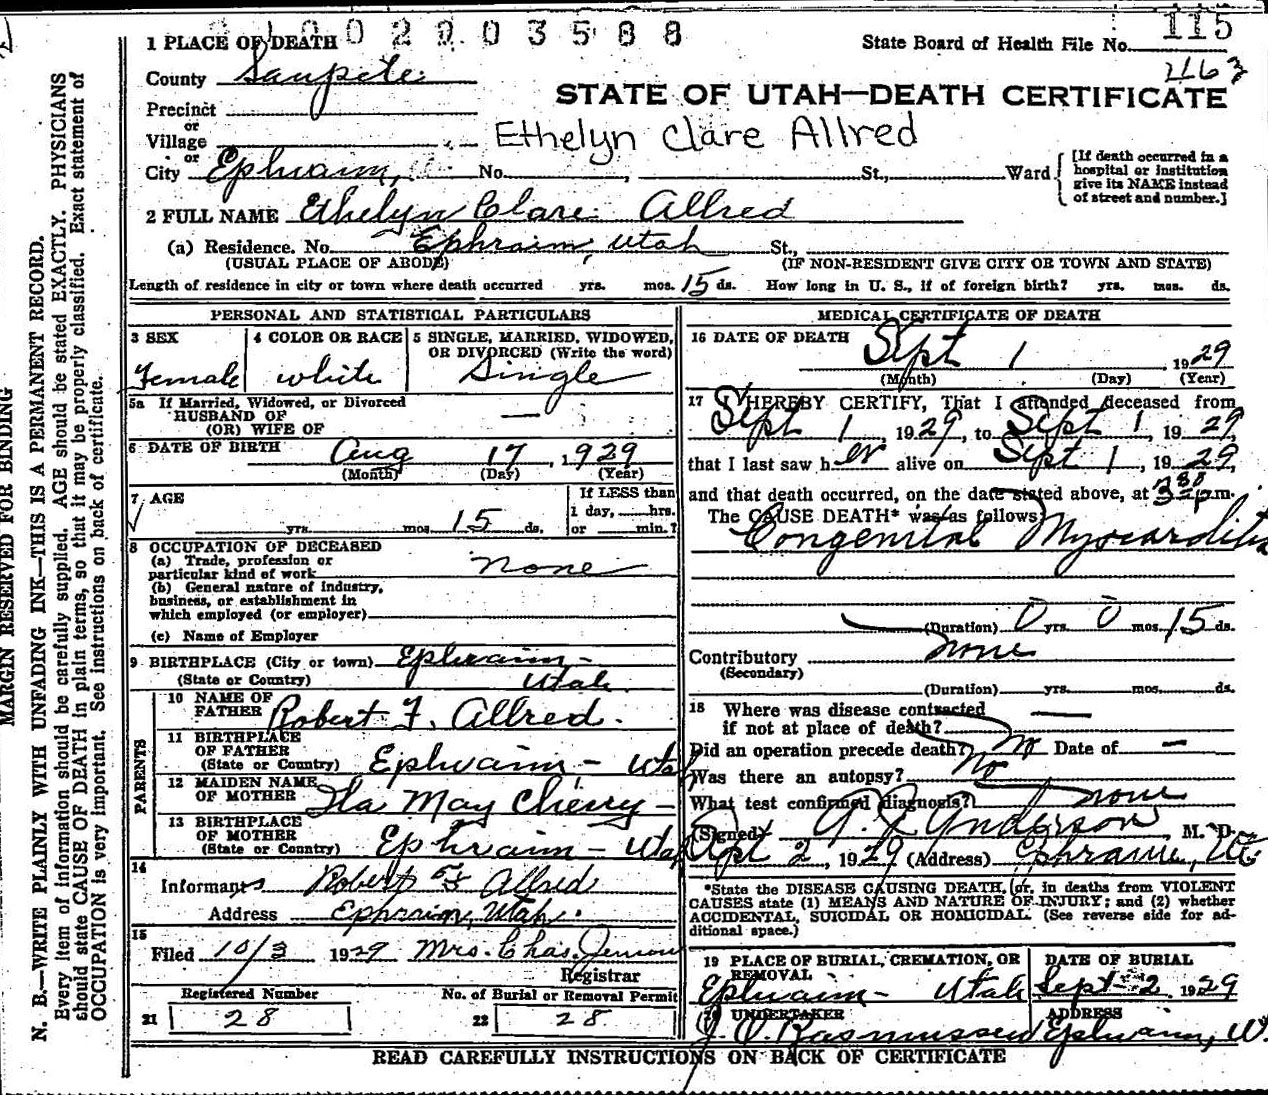 0 0 2 9 0 3 5 8 8
115
1 PLACE OF DEATH
State Board of Health File No.
County Sanpete
Precinct
or
Village
or
City Ephraim, No. , St., Ward
STATE OF UTAH—DEATH CERTIFICATE
Ethelyn Clare Allred
[If death occurred in a hospital or institution give its NAME instead of street and number.]
2 FULL NAME Ethelyn Clare Allred
(a) Residence. No. Ephraim, Utah St.,
(USUAL PLACE OF ABODE) (IF NON-RESIDENT GIVE CITY OR TOWN AND STATE)
Length of residence in city or town where death occurred yrs. mos. 15 ds. How long in U. S., if of foreign birth? yrs. mos. ds.
PERSONAL AND STATISTICAL PARTICULARS
3 SEX
Female
4 COLOR OR RACE
white
5 SINGLE, MARRIED, WIDOWED,
OR DIVORCED (Write the word)
Single
5a If Married, Widowed, or Divorced
HUSBAND OF —
(OR) WIFE OF
6 DATE OF BIRTH Aug 17, 1929
(Month) (Day) (Year)
7 AGE
yrs. mos. 15 ds.
If LESS than
1 day, hrs.
or min.?
8 OCCUPATION OF DECEASED
(a) Trade, profession or
particular kind of work none
(b) General nature of industry,
business, or establishment in
which employed (or employer)
(c) Name of Employer
9 BIRTHPLACE (City or town) Ephraim -
(State or Country) Utah
PARENTS
10 NAME OF
FATHER Robert F. Allred.
11 BIRTHPLACE
OF FATHER
(State or Country) Ephraim - Utah
12 MAIDEN NAME
OF MOTHER Ila May Cherry -
13 BIRTHPLACE
OF MOTHER
(State or Country) Ephraim - Utah
14
Informants Robert F. Allred
Address Ephraim, Utah.
15
Filed 10/3 1929 Mrs. Chas. Jensen
Registrar
Registered Number No. of Burial or Removal Permit
21 28 22 28
MEDICAL CERTIFICATE OF DEATH
16 DATE OF DEATH
Sept 1 , 1929
(Month) (Day) (Year)
17 I HEREBY CERTIFY, That I attended deceased from
Sept 1, 1929, to Sept 1, 1929,
that I last saw her alive on Sept 1, 1929,
and that death occurred, on the date stated above, at 3 30 p.m.
The CAUSE DEATH* was as follows
Congenital Myocarditis
(Duration) 0 yrs. 0 mos. 15 ds.
Contributory none
(Secondary)
(Duration) yrs. mos. ds.
18 Where was disease contracted
if not at place of death? —
Did an operation precede death? No Date of —
Was there an autopsy? No
What test confirmed diagnosis? none
(Signed) Anderson, M. D.
Sept 2, 1929 (Address) Ephraim, Ut
*State the DISEASE CAUSING DEATH, or, in deaths from VIOLENT
CAUSES state (1) MEANS AND NATURE OF INJURY; and (2) whether
ACCIDENTAL, SUICIDAL OR HOMICIDAL. (See reverse side for ad-
ditional space.)
19 PLACE OF BURIAL, CREMATION, OR
REMOVAL
Ephraim - Utah
DATE OF BURIAL
Sept - 2 1929
20 UNDERTAKER
J. O. Rasmussen
ADDRESS
Ephraim, U.
READ CAREFULLY INSTRUCTIONS ON BACK OF CERTIFICATE
MARGIN RESERVED FOR BINDING
N. B.—WRITE PLAINLY WITH UNFADING INK—THIS IS A PERMANENT RECORD.
Every item of information should be carefully supplied. AGE should be stated EXACTLY. PHYSICIANS
should state CAUSE OF DEATH in plain terms, so that it may be properly classified. Exact statement of
OCCUPATION is very important. See instructions on back of certificate.